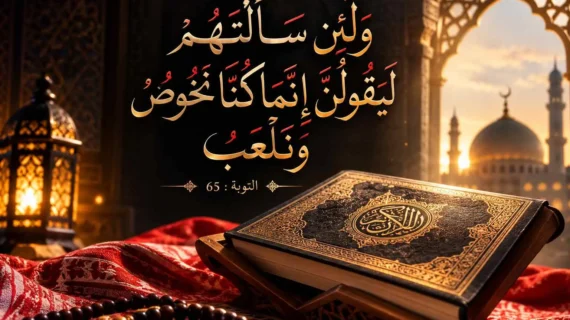 وَلَئِن سَأَلْتَهُمْ
لَيَقُولُنَّ إِنَّمَا كُنَّا نَخُوضُ
وَنَلْعَبُ
التوبة : 65